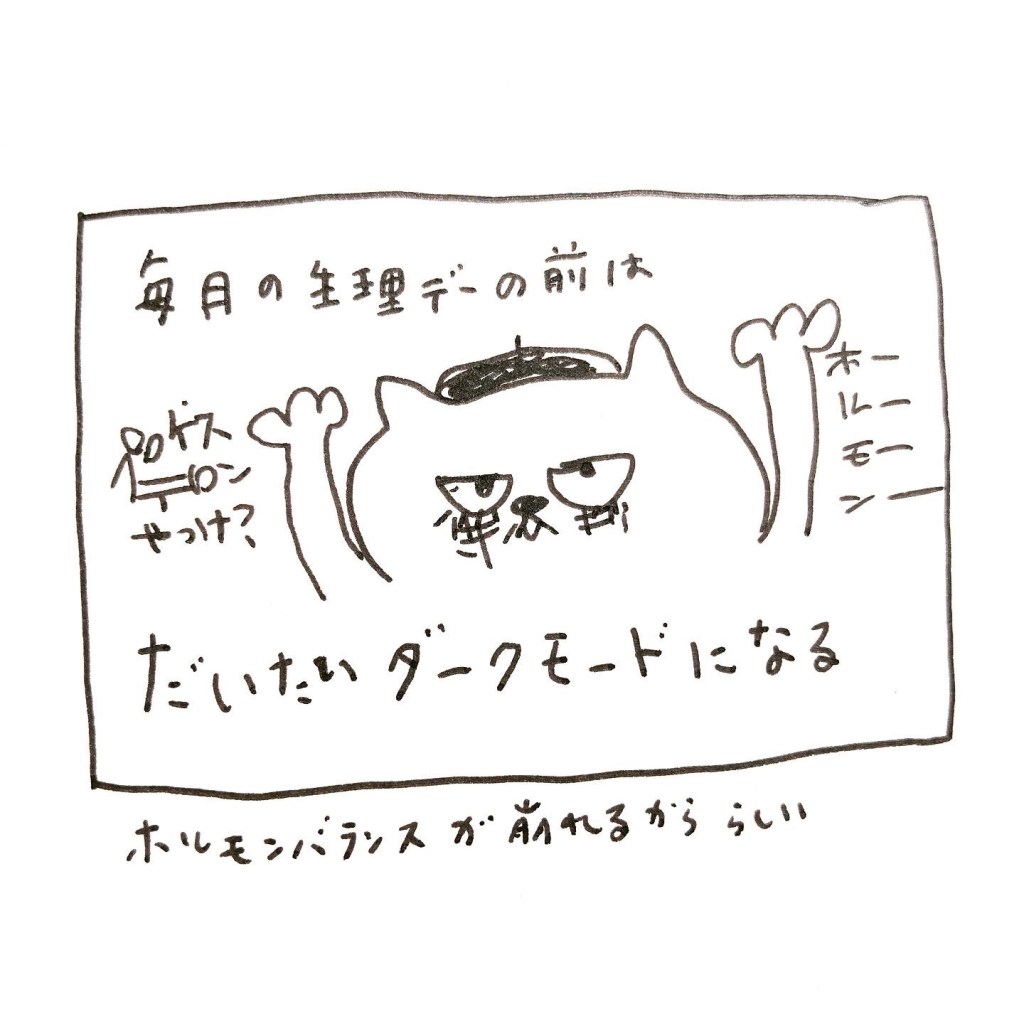 毎月の生理デーの前は
プロゲス
テロン
やっけ?
ホー
ルー
モー
ンー
だいたいダークモードになる
ホルモンバランスが崩れるかららしい